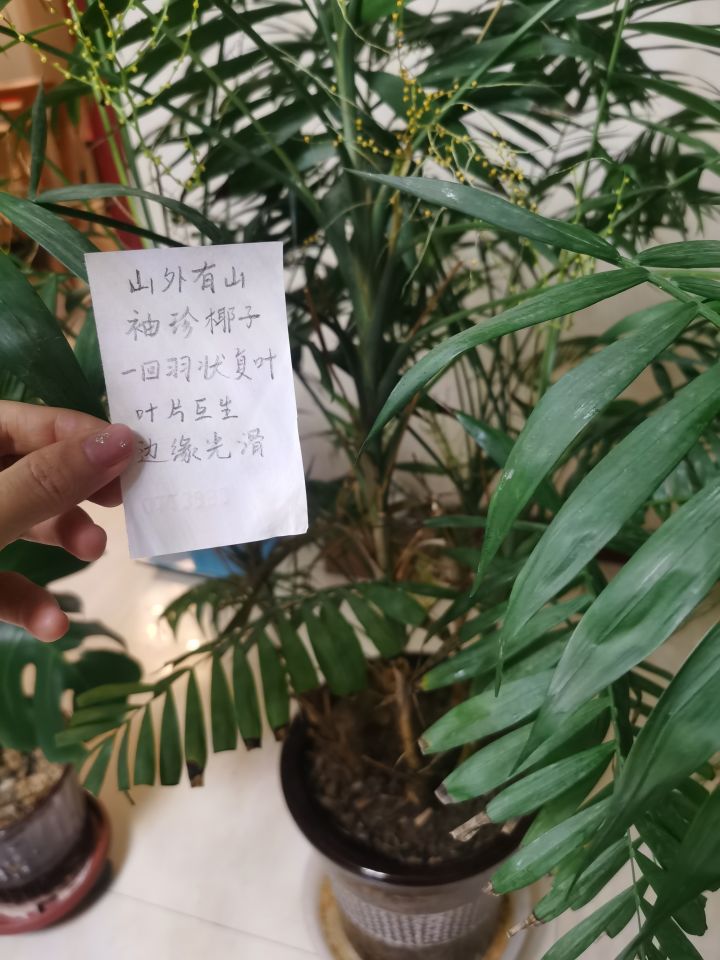 山外有山
袖珍椰子
一回羽状复叶
叶片互生
边缘光滑